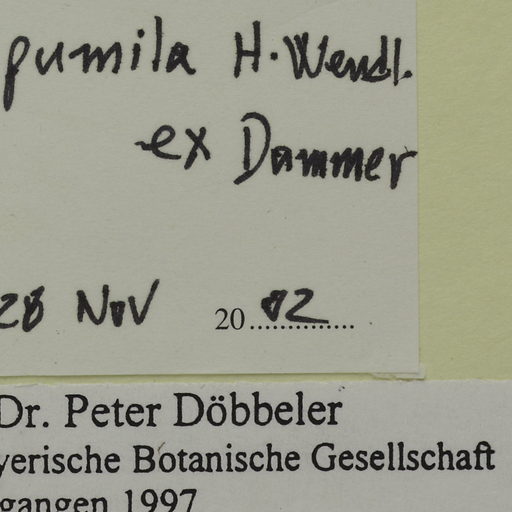 pumila H. Wendl.
ex Dammer
28 Nov 2002
Dr. Peter Döbbeler
yerische Botanische Gesellschaft
gangen 1997